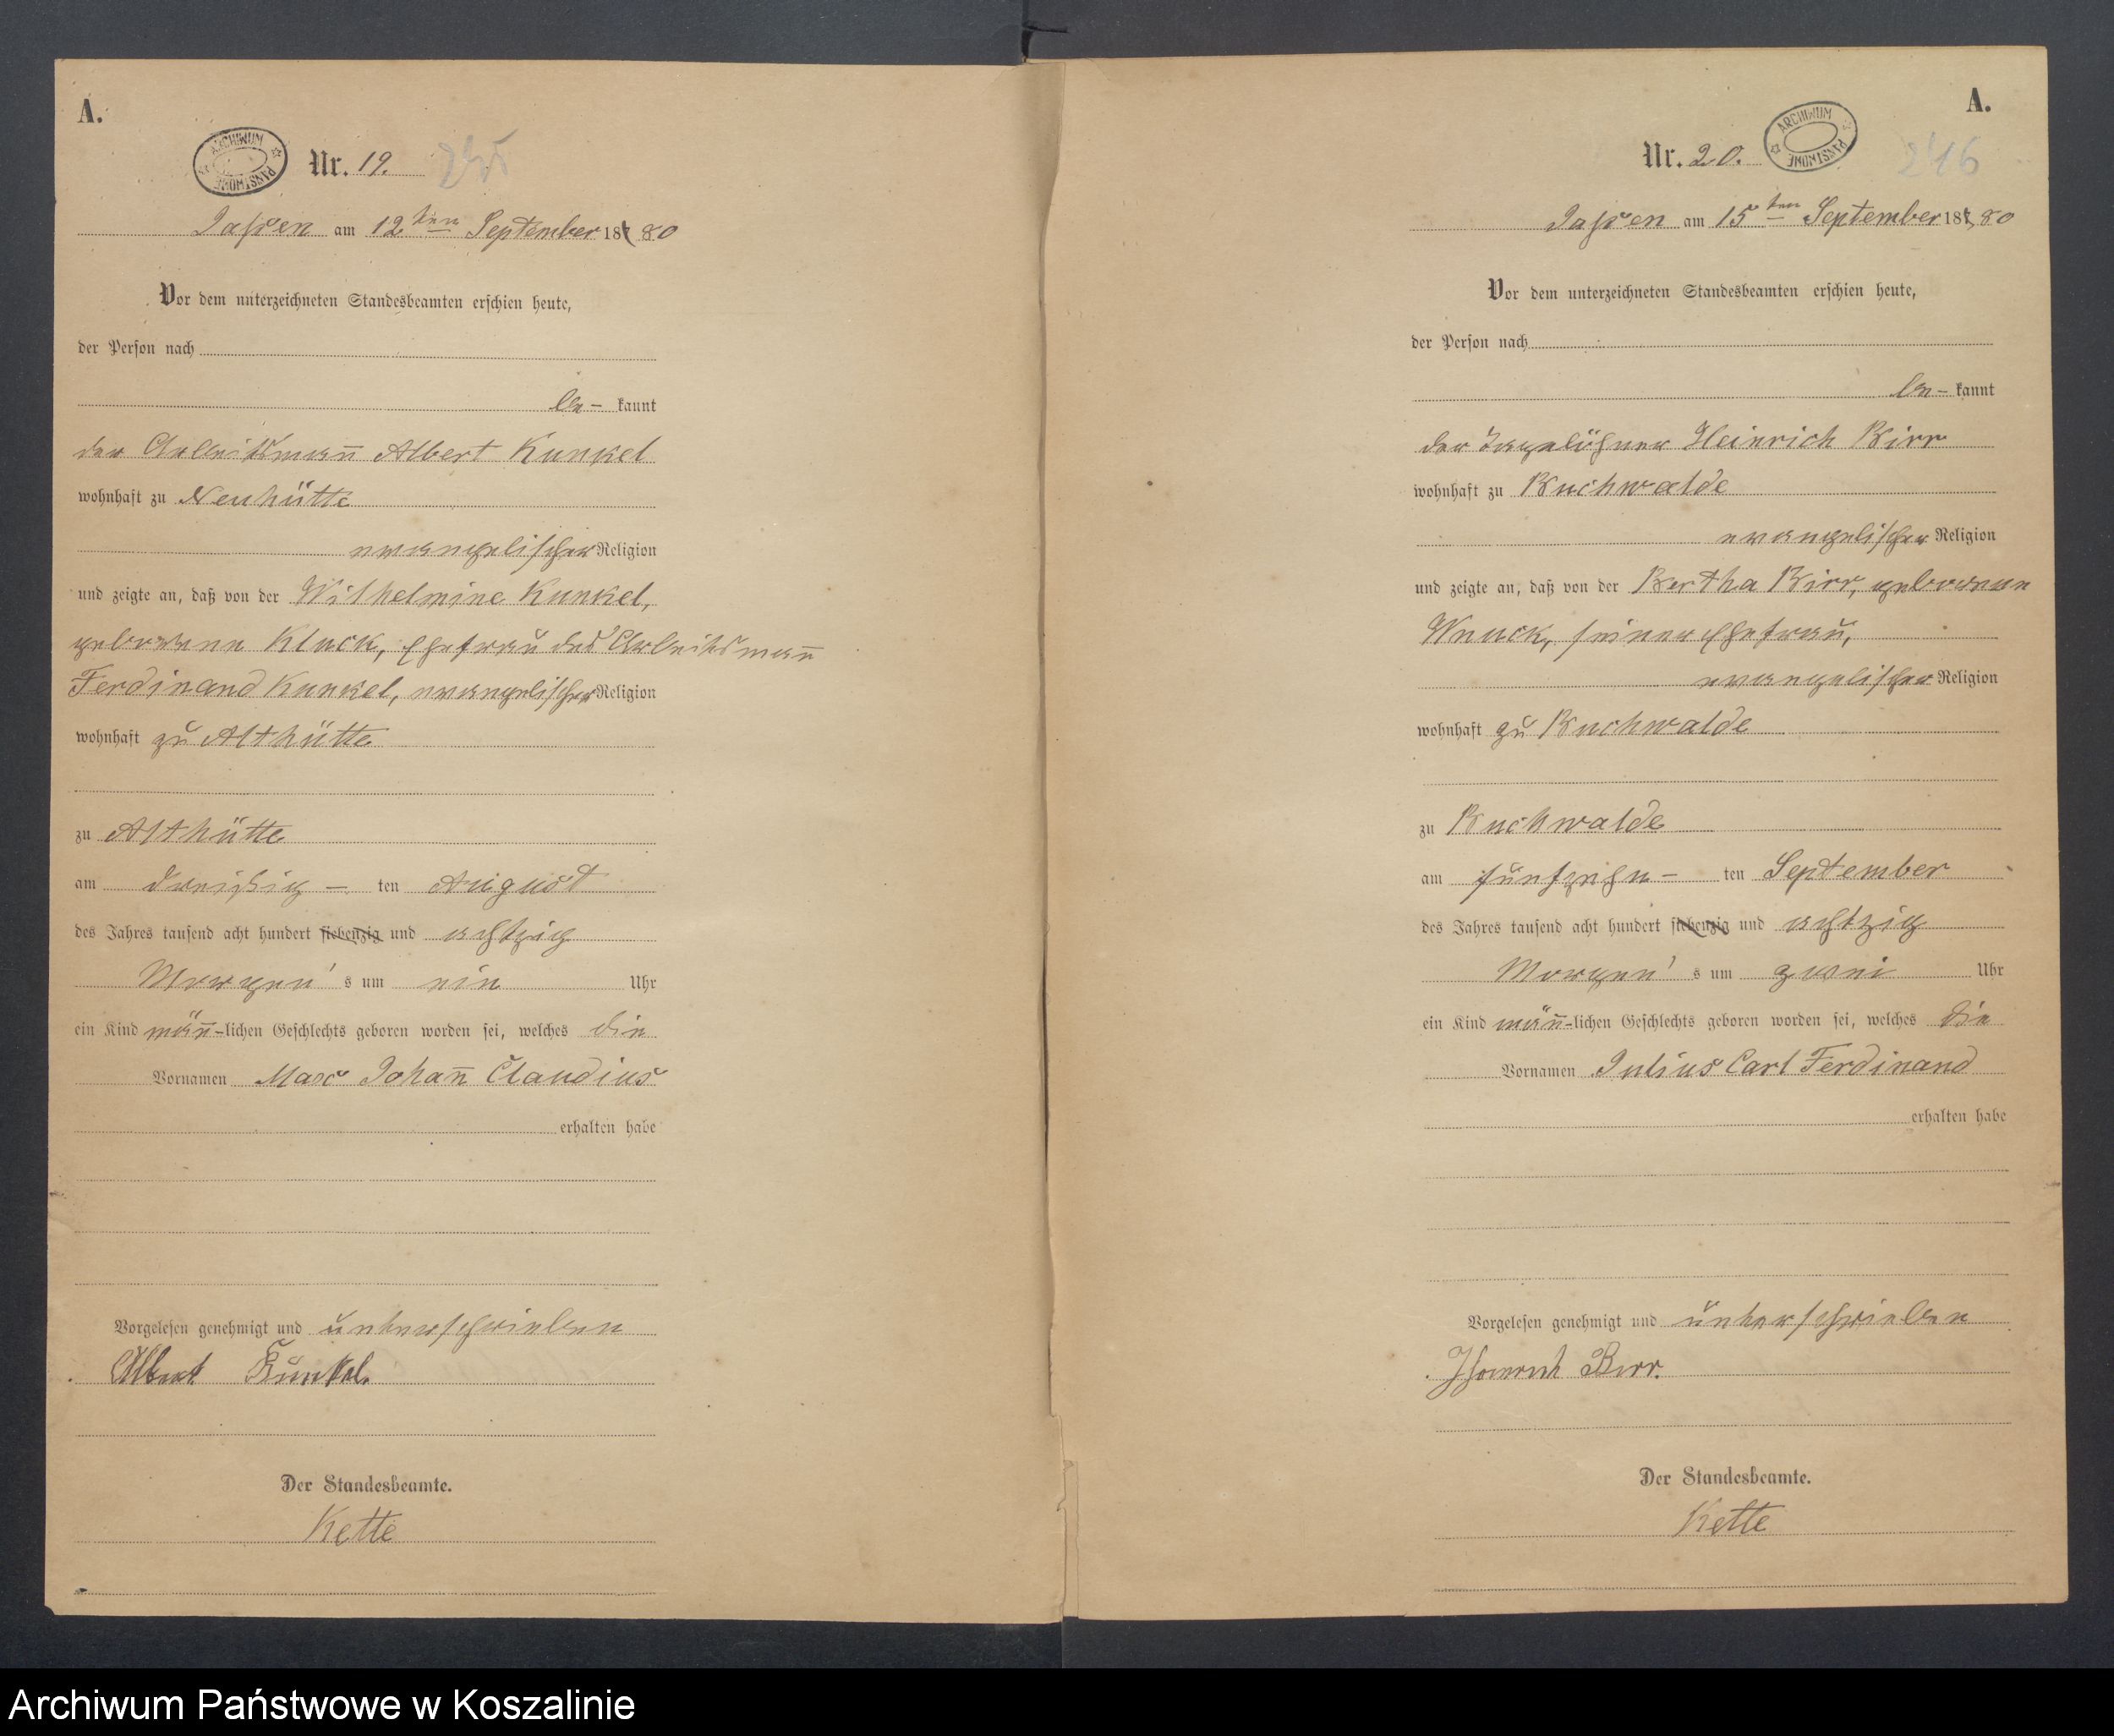 A.
ARCHIWUM PAŃSTWOWE
Nr. 19. 245
Jassen am 12ten September 1880
Vor dem unterzeichneten Standesbeamten erschien heute,
der Person nach
be- kannt
der Arbeitsmann̄ Albert Kunkel
wohnhaft zu Neuhütte
evangelischer Religion
und zeigte an, daß von der Wilhelmine Kunkel,
geborene Kluck, Ehefrau des Arbeitsman̄
Ferdinand Kunkel, evangelischer Religion
wohnhaft zu Althütte
zu Althütte
am dreißig – ten August
des Jahres tausend acht hundert siebenzig und achtzig
Morgen's um ein Uhr
ein Kind män̄-lichen Geschlechts geboren worden sei, welches die
Vornamen Max Johan̄ Claudius
erhalten habe
Vorgelesen genehmigt und unterschrieben
Albert Kunkel.
Der Standesbeamte.
Kette
A.
Nr. 20. ARCHIWUM PAŃSTWOWE 246
Jassen am 15ten September 1880
Vor dem unterzeichneten Standesbeamten erschien heute,
der Person nach
be- kannt
der Tagelöhner Heinrich Birr
wohnhaft zu Buchwalde
evangelischer Religion
und zeigte an, daß von der Bertha Birr, geborene
Wnuck, seiner Ehefrau,
evangelischer Religion
wohnhaft zu Buchwalde
zu Buchwalde
am fünfzehn – ten September
des Jahres tausend acht hundert siebenzig und achtzig
Morgen's um zwei Uhr
ein Kind män̄-lichen Geschlechts geboren worden sei, welches die
Vornamen Julius Carl Ferdinand
erhalten habe
Vorgelesen genehmigt und unterschrieben
Heinrich Birr.
Der Standesbeamte.
Kette
Archiwum Państwowe w Koszalinie